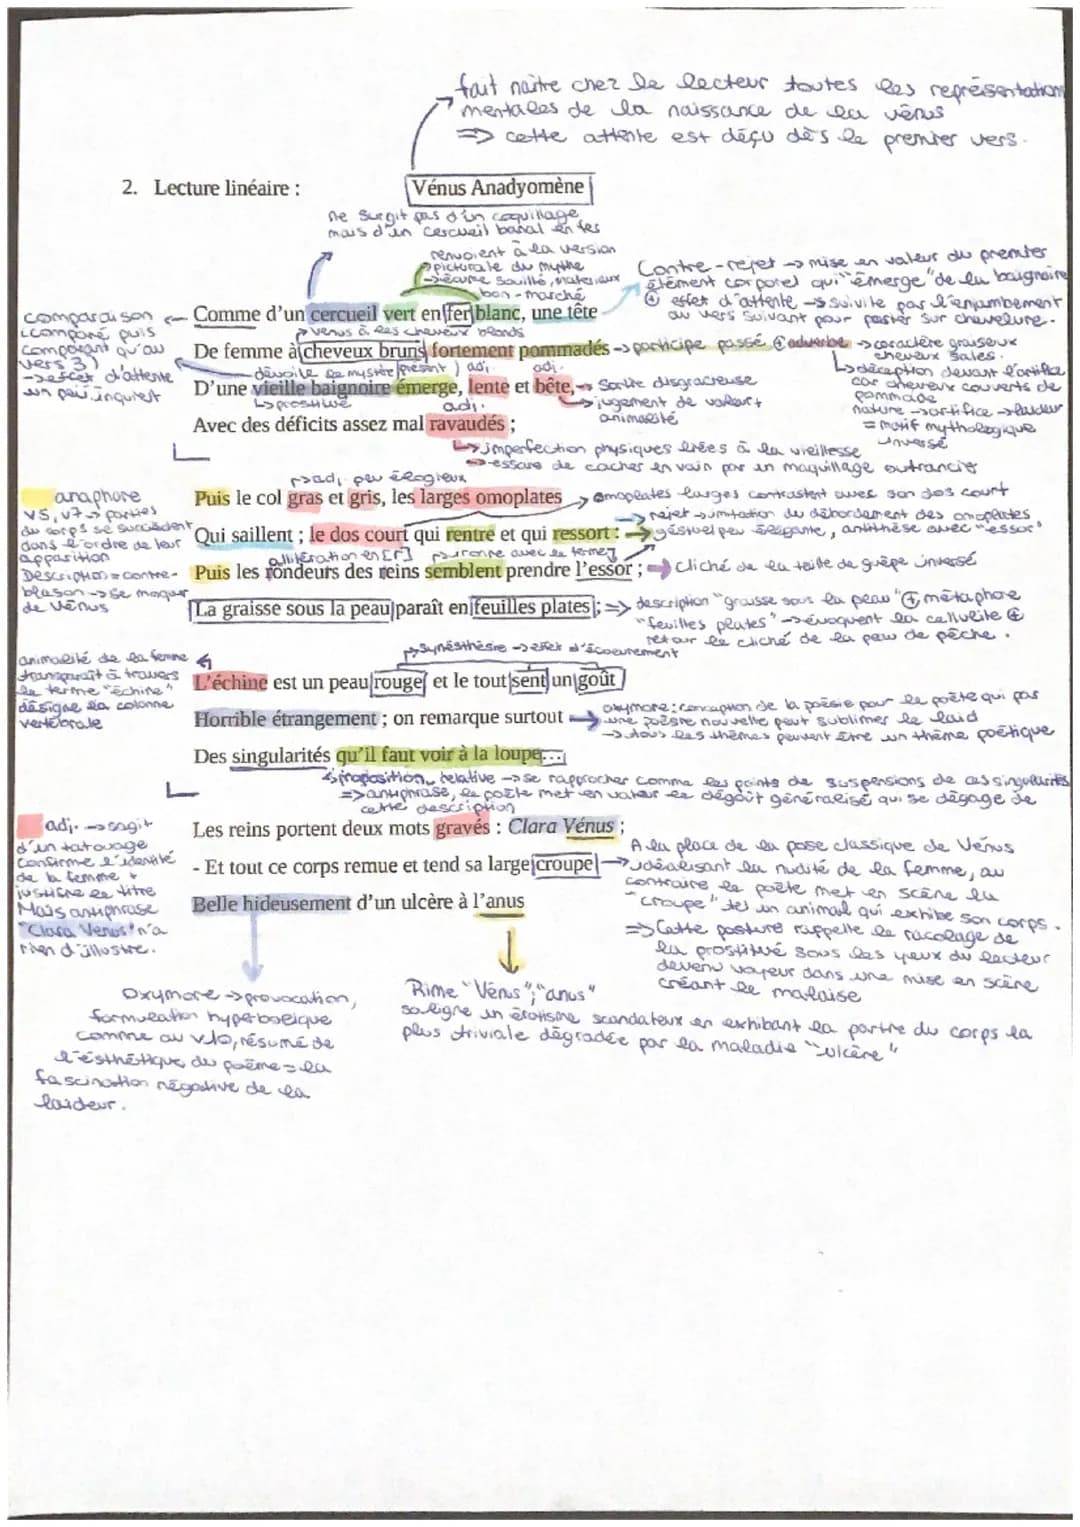 fait naître chez le lecteur toutes les représentations
mentales de la naissance de la vénus
=> cette attente est déçu dès le premier vers.
2. Lecture linéaire :
Vénus Anadyomène
ne surgit pas d'un coquillage
mais d'un cercueil banal en fer
renvoient à la version
picturale du mythe
→ écume souillé, matériaux
bon-marché
Contre-rejet → mise en valeur du premier
élément corporel qui "émerge" de la baignoire
⊕ effet d'attente → suivie par l'enjambement
au vers suivant pour porter sur chevelure.
comparaison
(comparé puis
comparant qu'au
vers 3)
→ effet d'attente
un peu inquiet
Comme d'un cercueil vert en fer blanc, une tête
→ vénus à les cheveux blonds
De femme à cheveux bruns fortement pommadés → participe passé ⊕ adverbe → caractère graisseux
cheveux sales.
↳ déception devant l'artifice
car cheveux couverts de
pommade
nature → artifice → laideur
= motif mythologique
inversé
dévoile le mystère (présent) adj. adj.
D'une vieille baignoire émerge, lente et bête, → Sortie disgracieuse
↳ prostitué adj. ↳ jugement de valeur +
animalité
Avec des déficits assez mal ravaudés ;
↳ imperfection physiques liées à la vieillesse
→ essaie de cacher en vain par un maquillage outrancier
→ adj. peu élogieux
anaphore
v5, v7 → parties
du corps se succèdent
dans l'ordre de leur
apparition
Description = contre-
blason → se moquer
de Vénus
Puis le col gras et gris, les larges omoplates → omoplates larges contrastent avec son dos court
→ rejet → imitation du débordement des omoplates
Qui saillent ; le dos court qui rentre et qui ressort : → gestuel peu élégante, antithèse avec "essor"
allitération en [r] → ironie avec le terme
Puis les rondeurs des reins semblent prendre l'essor ; → cliché de la taille de guêpe inversé
La graisse sous la peau paraît en feuilles plates ; => description "graisse sous la peau" ⊕ métaphore
"feuilles plates" → évoquent la cellulite ⊕
retour le cliché de la peau de pêche.
→ synésthésie → effet d'écoeurement
animalité de la femme
transparaît à travers
le terme "échine"
désigne la colonne
vertébrale
L'échine est un peu rouge, et le tout sent un goût
Horrible étrangement ; on remarque surtout → oxymore : conception de la poésie pour le poète qui pas
une poésie nouvelle peut sublimer le laid
→ tous les thèmes peuvent être un thème poétique
Des singularités qu'il faut voir à la loupe...
↳ proposition relative → se rapprocher comme les points de suspensions de ces singularités
=> antiphrase, le poète met en valeur le dégoût généralisé qui se dégage de
cette description
adj. → sagit
d'un tatouage
confirme l'identité
de la femme +
justifie le titre
Mais antiphrase
"Clara Venus" n'a
rien d'illustre.
Les reins portent deux mots gravés : Clara Vénus ;
- Et tout ce corps remue et tend sa large croupe
Belle hideusement d'un ulcère à l'anus
A la place de la pose classique de Vénus
idéalisant la nudité de la femme, au
contraire le poète met en scène la
"croupe" tel un animal qui exhibe son corps.
=> Cette posture rappelle le racolage de
la prostitué sous les yeux du lecteur
devenu voyeur dans une mise en scène
créant le malaise
Oxymore → provocation,
formulation hyperbolique
comme au v10, résumé de
l'ésthétique du poème = la
fascination négative de la
laideur.
Rime "Vénus" ; "anus"
souligne un érotisme scandaleux en exhibant la partie du corps la
plus triviale dégradée par la maladie "ulcère"